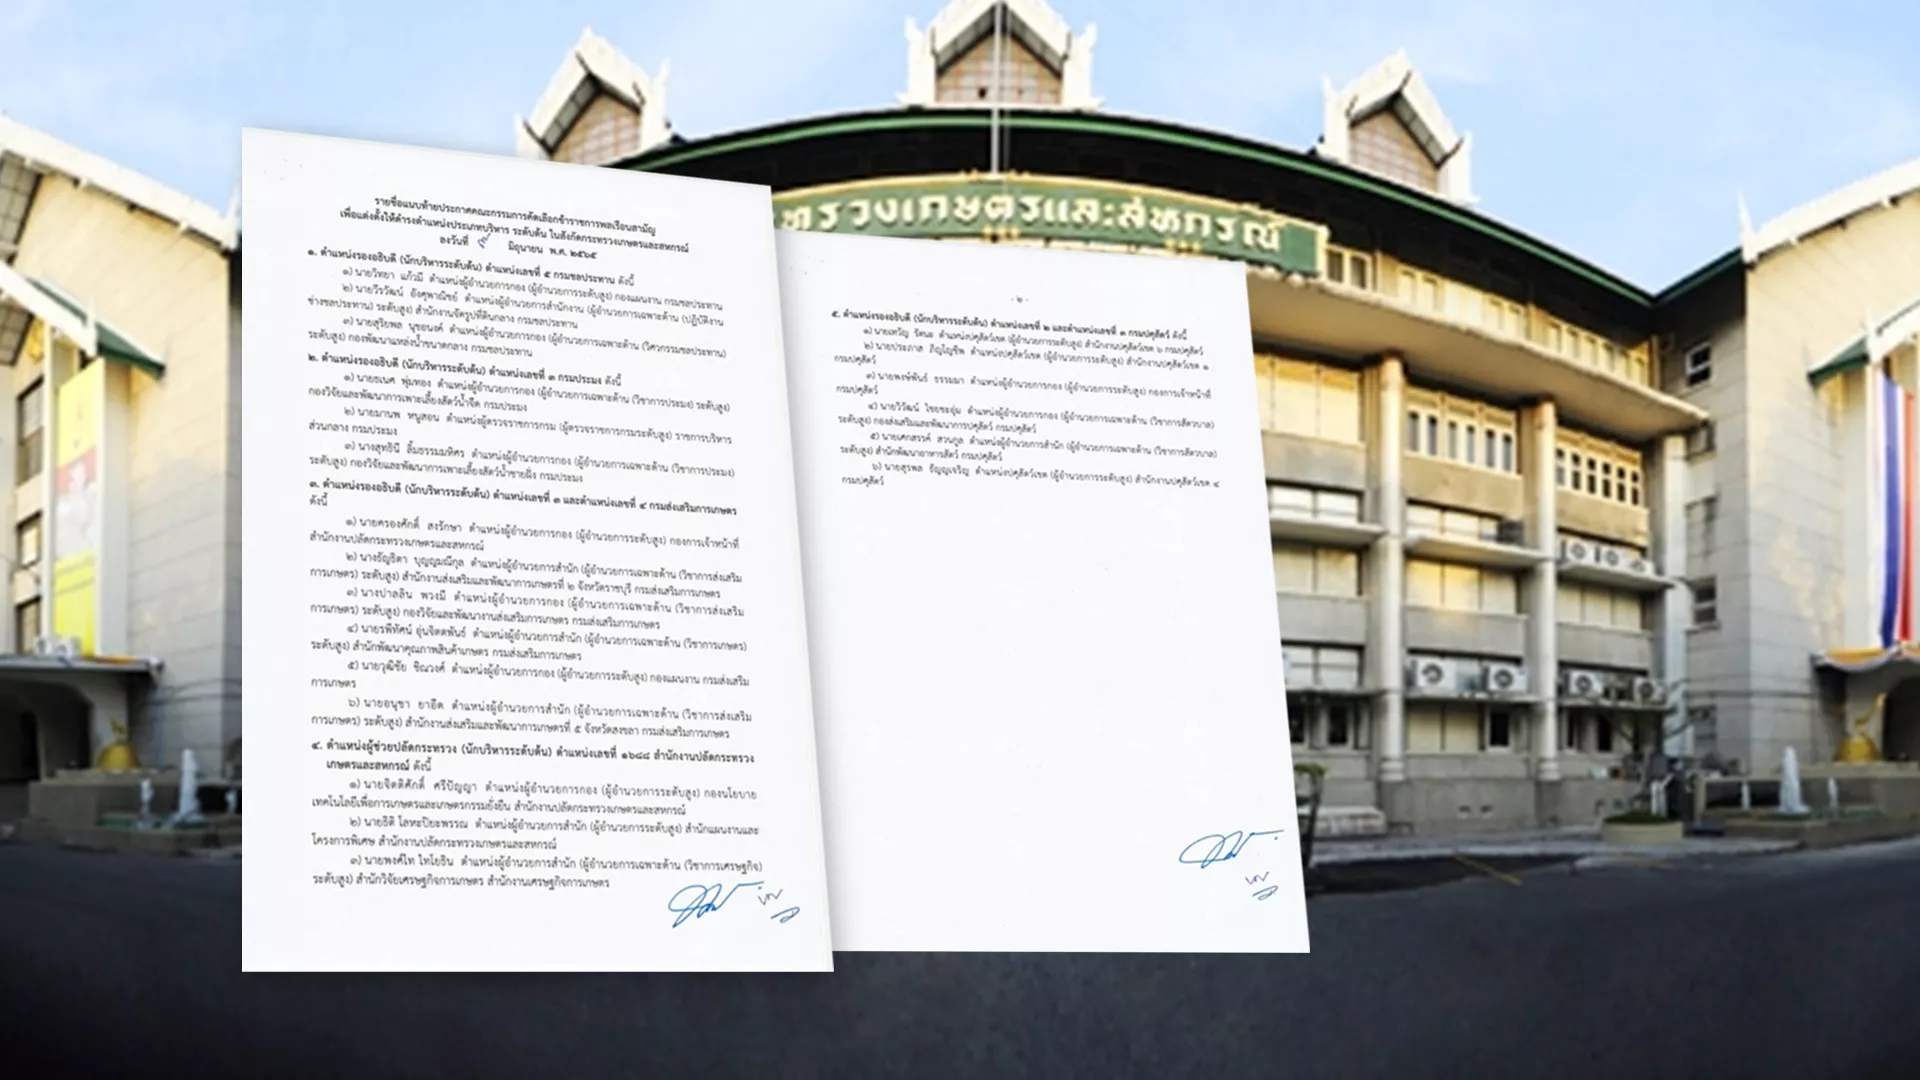 ทรวงเกษตรและสหกรณ์
รายชื่อแนบท้ายประกาศคณะกรรมการคัดเลือกข้าราชการพลเรือนสามัญ
เพื่อแต่งตั้งให้ดำรงตำแหน่งประเภทบริหาร ระดับต้น ในสังกัดกระทรวงเกษตรและสหกรณ์
ลงวันที่ ๙ มิถุนายน พ.ศ. ๒๕๖๕
๑. ตำแหน่งรองอธิบดี (นักบริหารระดับต้น) ตำแหน่งเลขที่ ๕ กรมชลประทาน ดังนี้
๑) นายวิทยา แก้วมี ตำแหน่งผู้อำนวยการกอง (ผู้อำนวยการระดับสูง) กองแผนงาน กรมชลประทาน
๒) นายวีรวัฒน์ อังศุพาณิชย์ ตำแหน่งผู้อำนวยการสำนักงาน (ผู้อำนวยการเฉพาะด้าน (ปฏิบัติงาน
ช่างชลประทาน) ระดับสูง) สำนักงานจัดรูปที่ดินกลาง กรมชลประทาน
๓) นายสุริยพล นุชอนงค์ ตำแหน่งผู้อำนวยการกอง (ผู้อำนวยการเฉพาะด้าน (วิศวกรรมชลประทาน)
ระดับสูง) กองพัฒนาแหล่งน้ำขนาดกลาง กรมชลประทาน
๒. ตำแหน่งรองอธิบดี (นักบริหารระดับต้น) ตำแหน่งเลขที่ ๓ กรมประมง ดังนี้
๑) นายธเนศ พุ่มทอง ตำแหน่งผู้อำนวยการกอง (ผู้อำนวยการเฉพาะด้าน (วิชาการประมง) ระดับสูง)
กองวิจัยและพัฒนาการเพาะเลี้ยงสัตว์น้ำจืด กรมประมง
๒) นายมานพ หนูสอน ตำแหน่งผู้ตรวจราชการกรม (ผู้ตรวจราชการกรมระดับสูง) ราชการบริหาร
ส่วนกลาง กรมประมง
๓) นางสุทธินี ลิ้มธรรมมหิศร ตำแหน่งผู้อำนวยการกอง (ผู้อำนวยการเฉพาะด้าน (วิชาการประมง)
ระดับสูง) กองวิจัยและพัฒนาการเพาะเลี้ยงสัตว์น้ำชายฝั่ง กรมประมง
๓. ตำแหน่งรองอธิบดี (นักบริหารระดับต้น) ตำแหน่งเลขที่ ๓ และตำแหน่งเลขที่ ๔ กรมส่งเสริมการเกษตร
ดังนี้
๑) นายครองศักดิ์ สงรักษา ตำแหน่งผู้อำนวยการกอง (ผู้อำนวยการระดับสูง) กองการเจ้าหน้าที่
สำนักงานปลัดกระทรวงเกษตรและสหกรณ์
๒) นางธัญธิตา บุญญมณีกุล ตำแหน่งผู้อำนวยการสำนัก (ผู้อำนวยการเฉพาะด้าน (วิชาการส่งเสริม
การเกษตร) ระดับสูง) สำนักงานส่งเสริมและพัฒนาการเกษตรที่ ๒ จังหวัดราชบุรี กรมส่งเสริมการเกษตร
๓) นางปาลลิน พวงมี ตำแหน่งผู้อำนวยการกอง (ผู้อำนวยการเฉพาะด้าน (วิชาการส่งเสริม
การเกษตร) ระดับสูง) กองวิจัยและพัฒนางานส่งเสริมการเกษตร กรมส่งเสริมการเกษตร
๔) นายรพีทัศน์ อุ่นจิตตพันธ์ ตำแหน่งผู้อำนวยการสำนัก (ผู้อำนวยการเฉพาะด้าน (วิชาการเกษตร)
ระดับสูง) สำนักพัฒนาคุณภาพสินค้าเกษตร กรมส่งเสริมการเกษตร
๕) นายวุฒิชัย ชิณวงศ์ ตำแหน่งผู้อำนวยการกอง (ผู้อำนวยการระดับสูง) กองแผนงาน กรมส่งเสริม
การเกษตร
๖) นายอนุชา ยาอีด ตำแหน่งผู้อำนวยการสำนัก (ผู้อำนวยการเฉพาะด้าน (วิชาการส่งเสริม
การเกษตร) ระดับสูง) สำนักงานส่งเสริมและพัฒนาการเกษตรที่ ๕ จังหวัดสงขลา กรมส่งเสริมการเกษตร
๔. ตำแหน่งผู้ช่วยปลัดกระทรวง (นักบริหารระดับต้น) ตำแหน่งเลขที่ ๑๖๘๘ สำนักงานปลัดกระทรวง
เกษตรและสหกรณ์ ดังนี้
๑) นายจิตติศักดิ์ ศรีปัญญา ตำแหน่งผู้อำนวยการกอง (ผู้อำนวยการระดับสูง) กองนโยบาย
เทคโนโลยีเพื่อการเกษตรและเกษตรกรรมยั่งยืน สำนักงานปลัดกระทรวงเกษตรและสหกรณ์
๒) นายธิติ โลหะปิยะพรรณ ตำแหน่งผู้อำนวยการสำนัก (ผู้อำนวยการระดับสูง) สำนักแผนงานและ
โครงการพิเศษ สำนักงานปลัดกระทรวงเกษตรและสหกรณ์
๓) นายพงศ์ไท ไทโยธิน ตำแหน่งผู้อำนวยการสำนัก (ผู้อำนวยการเฉพาะด้าน (วิชาการเศรษฐกิจ)
ระดับสูง) สำนักวิจัยเศรษฐกิจการเกษตร สำนักงานเศรษฐกิจการเกษตร
- ๒ -
๕. ตำแหน่งรองอธิบดี (นักบริหารระดับต้น) ตำแหน่งเลขที่ ๒ และตำแหน่งเลขที่ ๓ กรมปศุสัตว์ ดังนี้
๑) นายเทวัญ รัตนะ ตำแหน่งปศุสัตว์เขต (ผู้อำนวยการระดับสูง) สำนักงานปศุสัตว์เขต ๖ กรมปศุสัตว์
๒) นายประภาส ภิญโญชีพ ตำแหน่งปศุสัตว์เขต (ผู้อำนวยการระดับสูง) สำนักงานปศุสัตว์เขต ๑
กรมปศุสัตว์
๓) นายพงษ์พันธ์ ธรรมมา ตำแหน่งผู้อำนวยการกอง (ผู้อำนวยการระดับสูง) กองการเจ้าหน้าที่
กรมปศุสัตว์
๔) นายวิวัฒน์ ไชยชะอุ่ม ตำแหน่งผู้อำนวยการกอง (ผู้อำนวยการเฉพาะด้าน (วิชาการสัตวบาล)
ระดับสูง) กองส่งเสริมและพัฒนาการปศุสัตว์ กรมปศุสัตว์
๕) นายเศกสรรค์ สวนกูล ตำแหน่งผู้อำนวยการสำนัก (ผู้อำนวยการเฉพาะด้าน (วิชาการสัตวบาล)
ระดับสูง) สำนักพัฒนาอาหารสัตว์ กรมปศุสัตว์
๖) นายสุรพล ธัญญเจริญ ตำแหน่งปศุสัตว์เขต (ผู้อำนวยการระดับสูง) สำนักงานปศุสัตว์เขต ๔
กรมปศุสัตว์